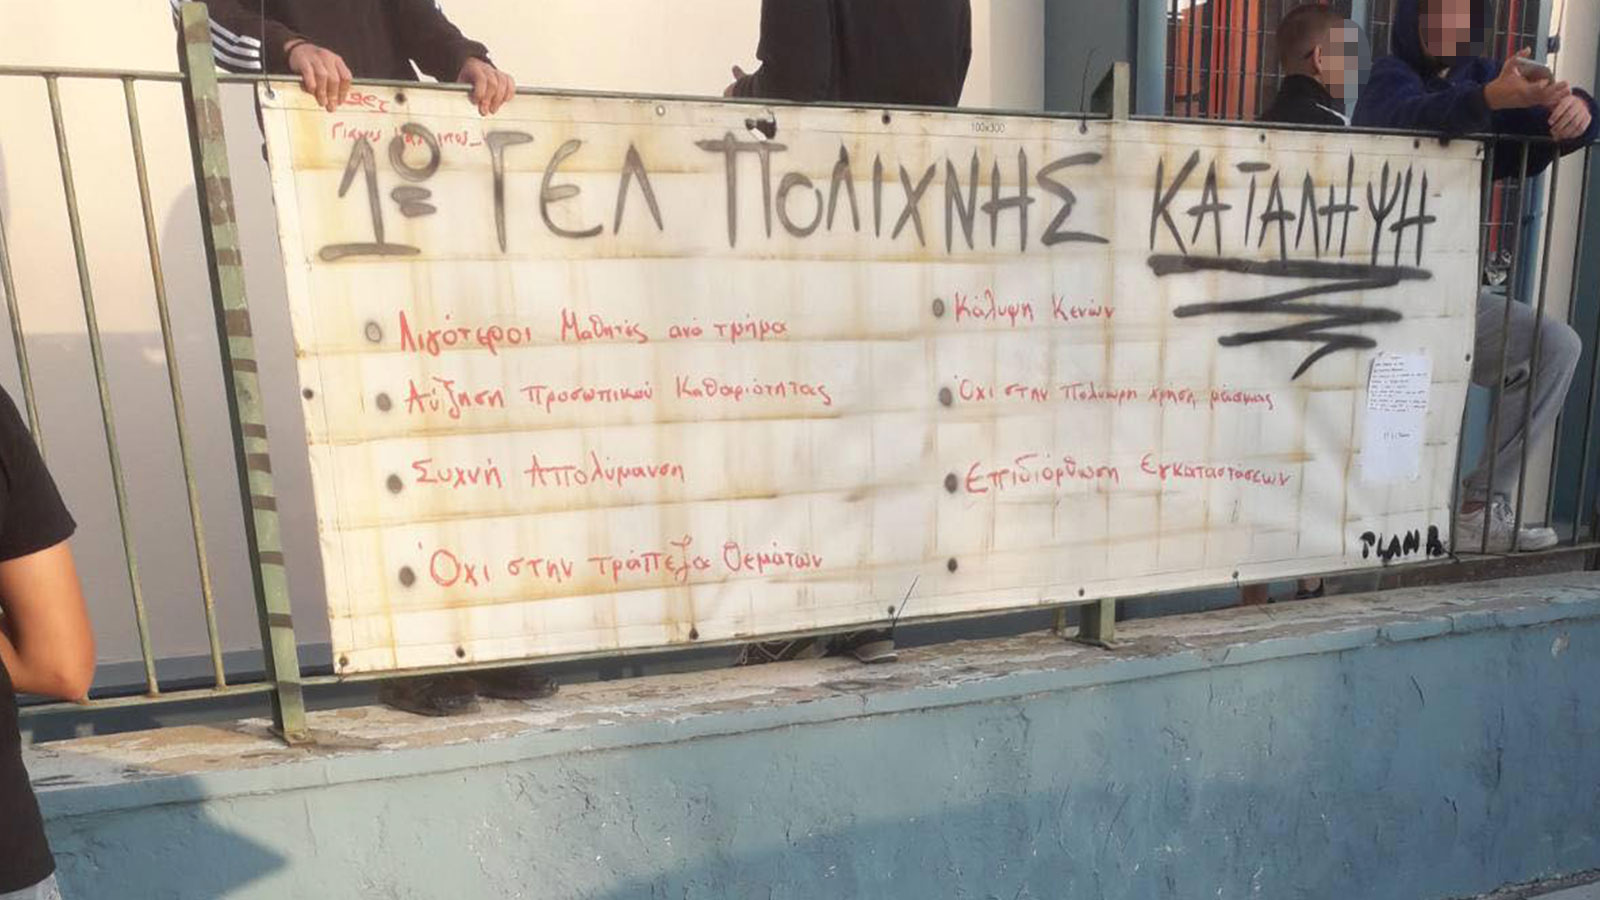 1ο ΓΕΛ ΠΟΛΙΧΝΗΣ ΚΑΤΑΛΗΨΗ
100x300
Λιγότεροι Μαθητές ανά τμήμα
Αύξηση Προσωπικού Καθαριότητας
Συχνή Απολύμανση
Όχι στην τράπεζα θεμάτων
Κάλυψη Κενών
Όχι στην πολύωρη χρήση μάσκας
Επιδιόρθωση Εγκαταστάσεων
PLAN B